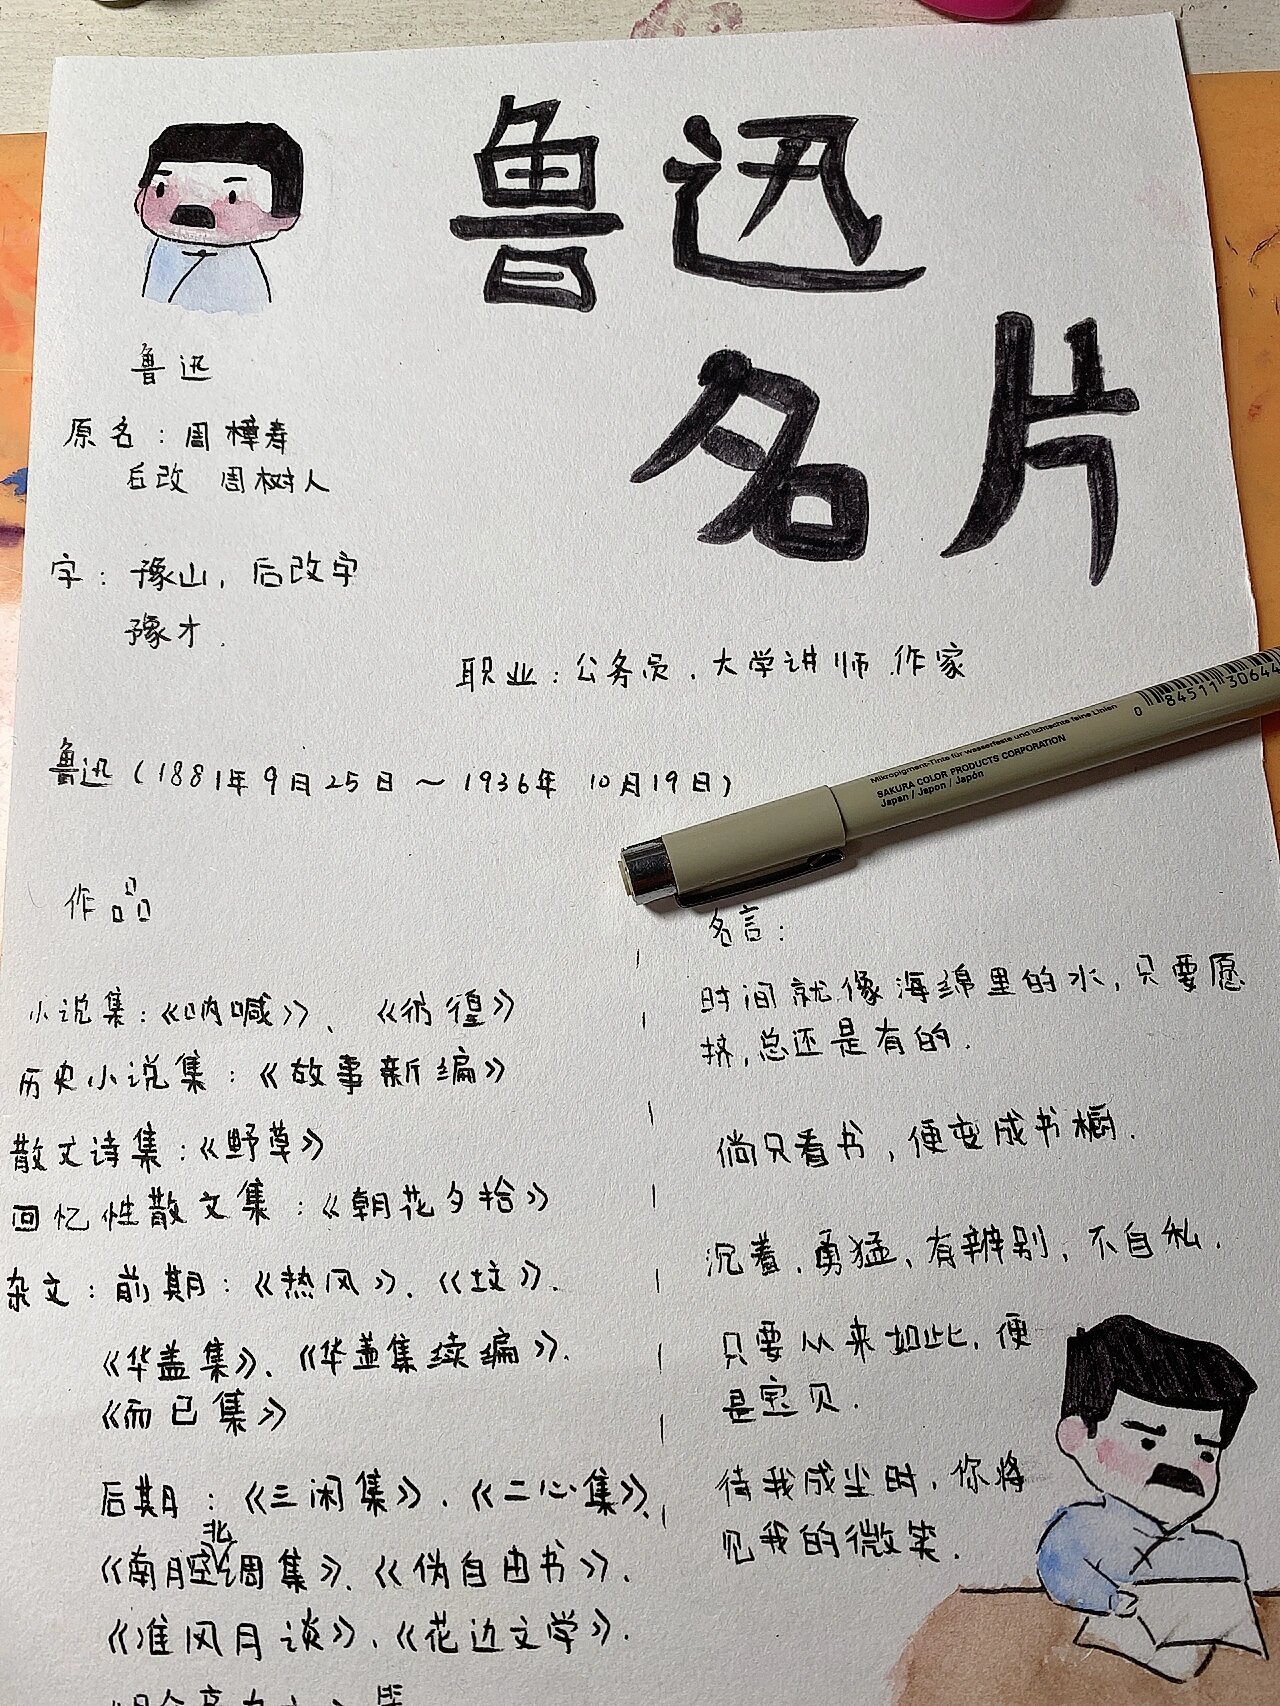 鲁迅
名片
鲁迅
原名：周樟寿
后改 周树人
字：豫山，后改字
豫才．
职业：公务员．大学讲师．作家
鲁迅（1881年9月25日～1936年 10月19日）
0 84511 30644
Mikropigment-Tinte für wasserfeste und lichtechte feine Linien
SAKURA COLOR PRODUCTS CORPORATION
Japan / Japon / Japón
作品
小说集：《呐喊》、《彷徨》
历史小说集：《故事新编》
散文诗集：《野草》
回忆性散文集：《朝花夕拾》
杂文：前期：《热风》、《坟》．
《华盖集》、《华盖集续编》．
《而已集》
后期：《三闲集》．《二心集》、
《南腔北调集》、《伪自由书》．
《准风月谈》、《花边文学》．
名言：
时间就像海绵里的水，只要愿
挤，总还是有的．
倘只看书，便变成书橱．
沉着．勇猛、有辨别．不自私．
只要从来如此，便
是宝贝．
待我成尘时，你将
见我的微笑．